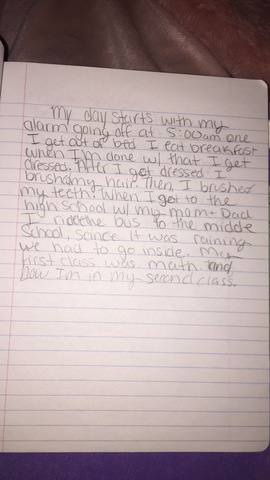 My day starts with my
alarm going off at 5:00am one
I get out of bed I eat breakfast
when I'm done w/ that I get
dressed. After I get dressed I
brushed my hair. Then, I brushed
my teeth. When I got to the
high school w/ my mom + Dad
I ride the bus to the middle
School, scince it was raining
we had to go inside. My
first class was math and
now I'm in my second class.